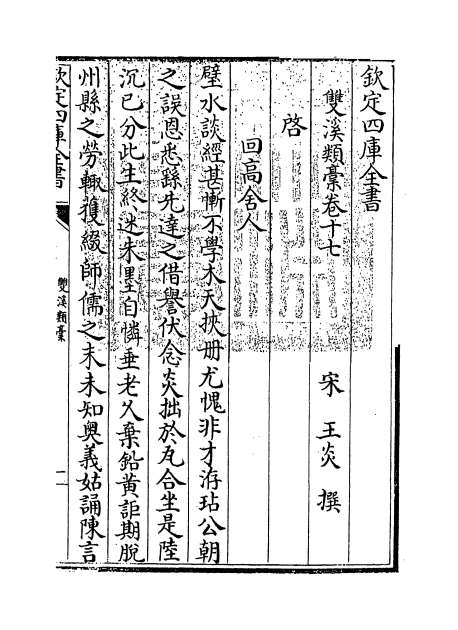 欽定四庫全書
雙溪類藁卷十七
宋 王炎 撰
啓
回高舍人
璧水談經甚慚不學木天挾册尤愧非才洊玷公朝
之誤恩悉繇先達之借譽伏念炎拙於瓦合坐是陸
沉已分此生終迷朱墨自憐垂老久棄鉛黄詎期脫
州縣之勞輙獲綴師儒之末未知奥義姑誦陳言
欽定四庫全書
雙溪類藁